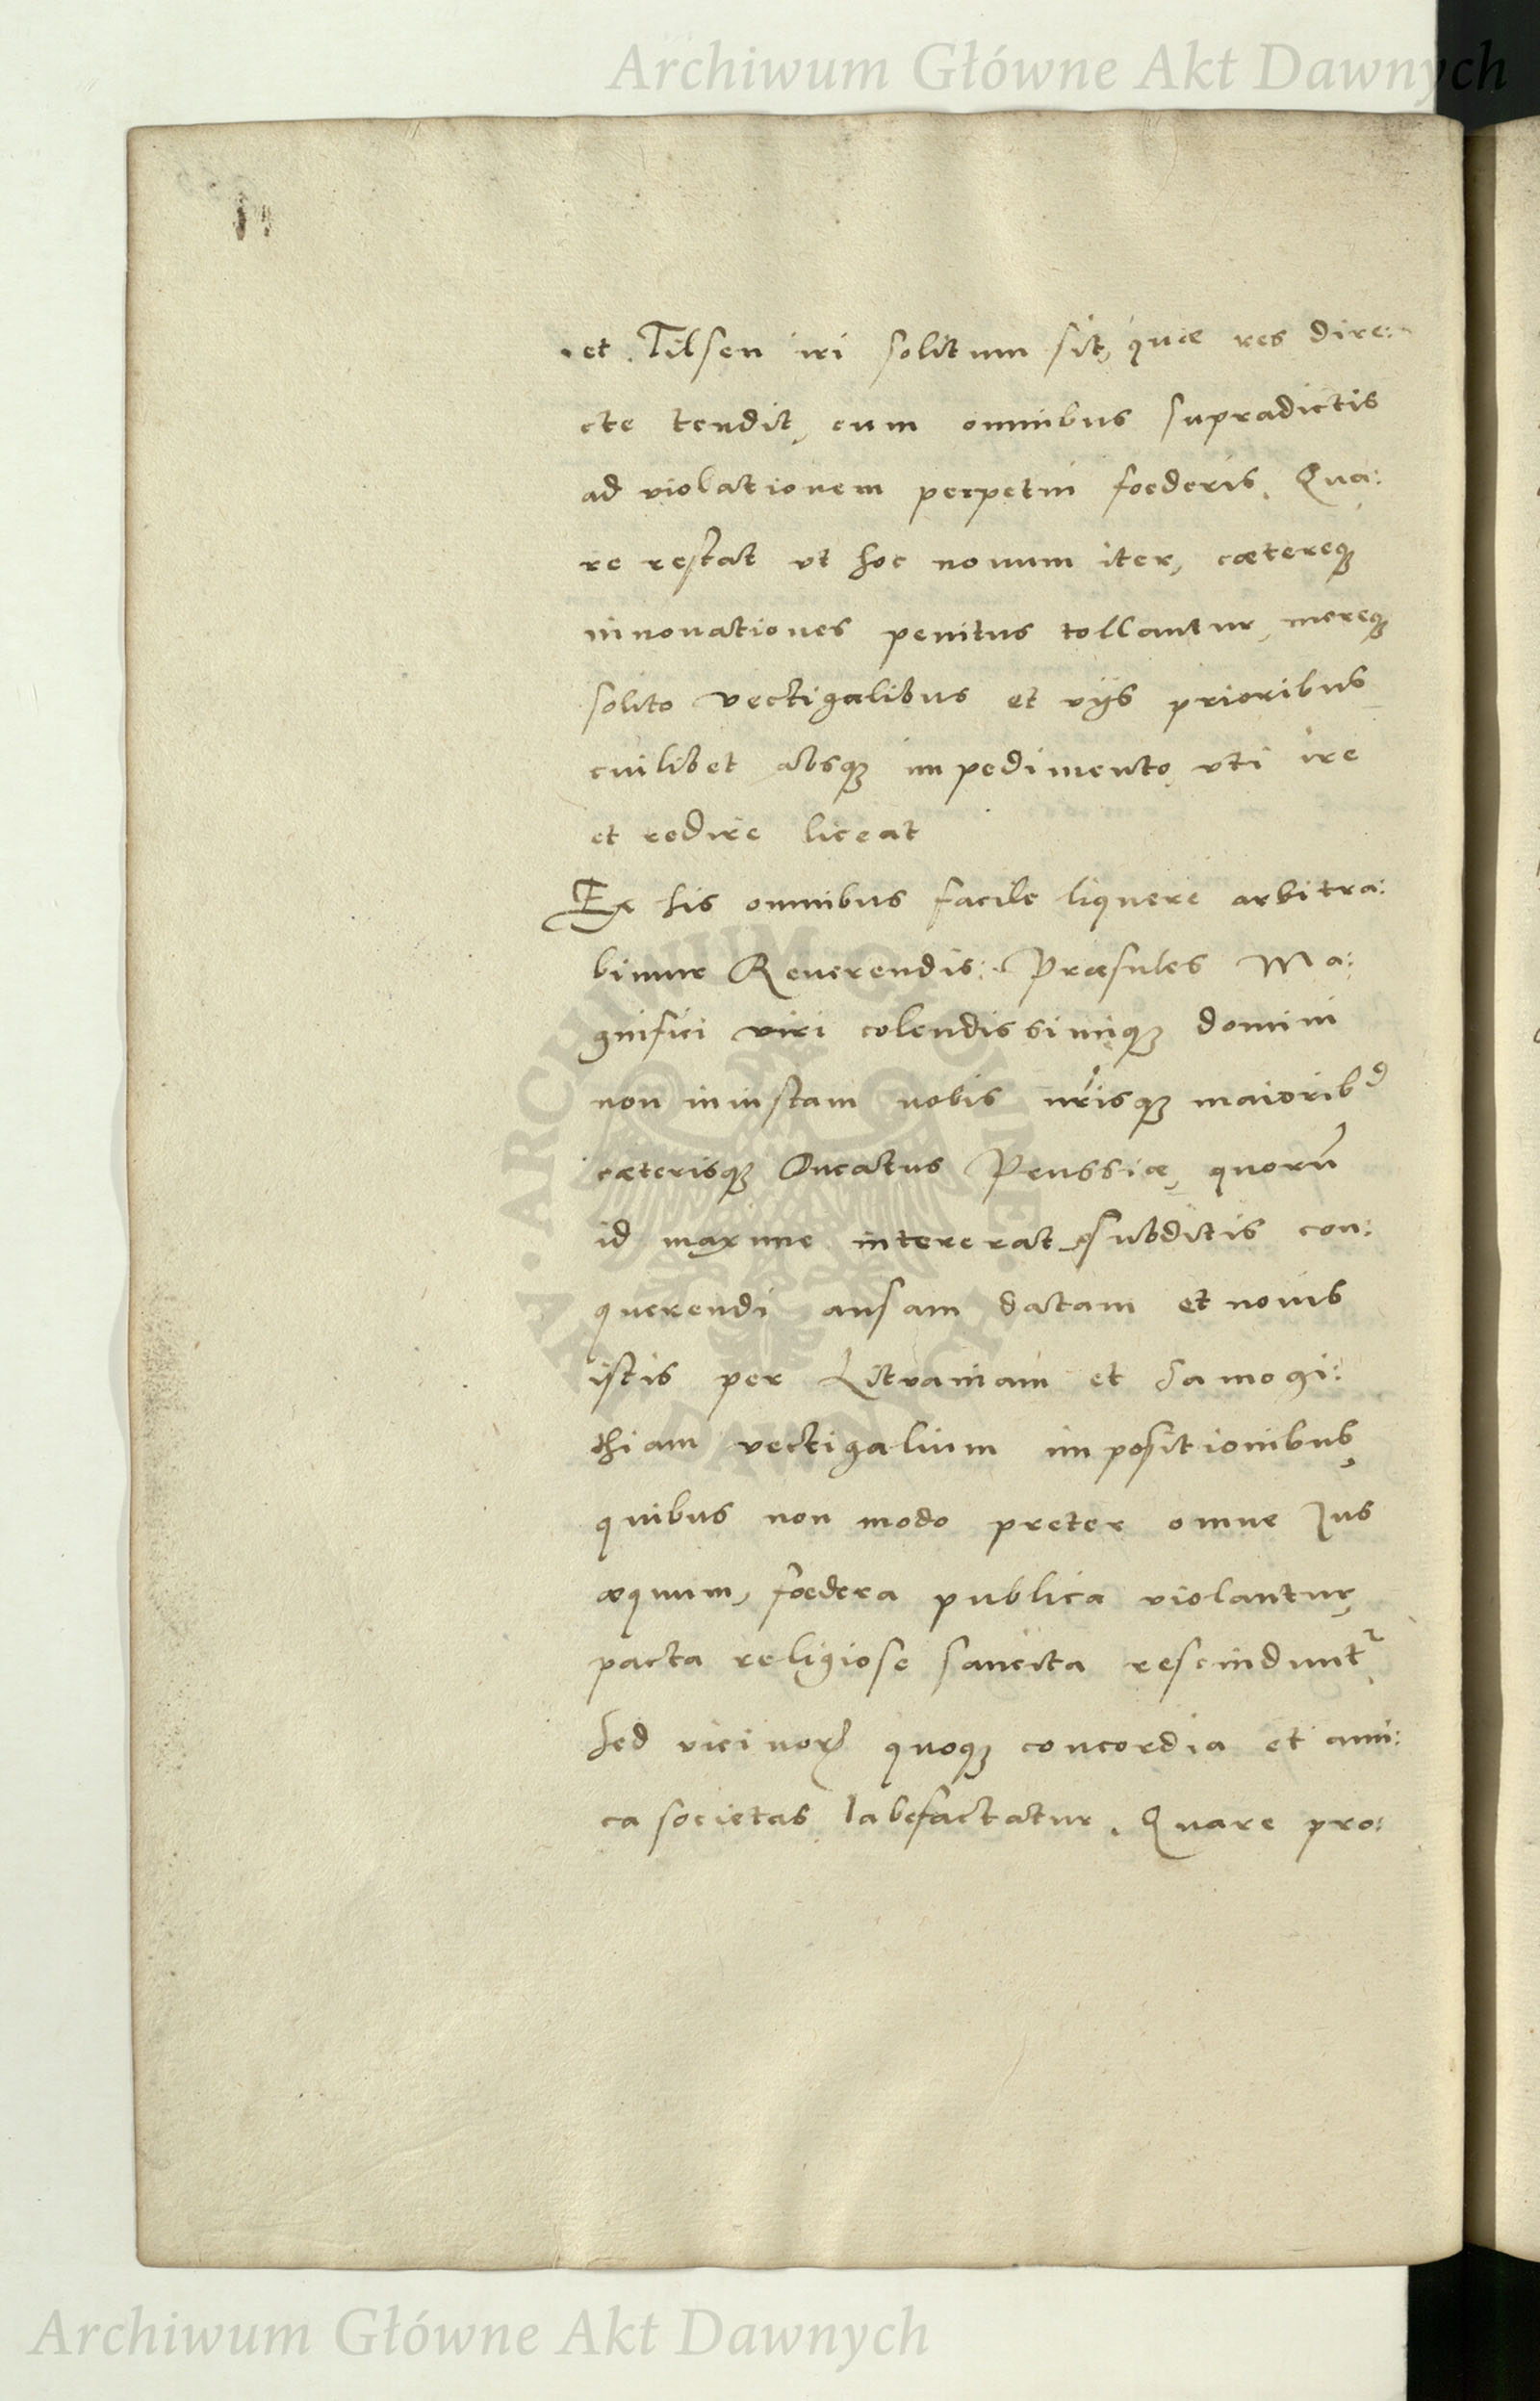 Archiwum Główne Akt Dawnych
et Tilsen iri solitum sit, quæ res dire:
cte tendit, cum omnibus supradictis
ad violationem perpetui foederis. Qua:
re restat vt hoc nouum iter, cætereq̃
innouationes penitus tollantur, moreq̃
solito vectigalibus et vijs prioribus
cuilibet absq̃ impedimento vti ire
et redire liceat
Ex his omnibus facile liquere arbitra:
bimur Reuerendis: Præsules Ma:
gnifici viri colendissimiq̃ domini
non iniustam nobis nr̃isq̃ maiorib9
cæterisq̃ Ducatus Prussiæ, quorũ
id maxime intererat subditis con:
querendi ansam datam et nouis
istis per Lituaniam et Samogi:
thiam vectigalium impositionibus,
quibus non modo preter omne Jus
æquum, foedera publica violantur,
pacta religiose sancita rescindunt~
sed vicinoꝝ quoq̃ concordia et ami:
ca societas labefactatur. Quare pro:
ARCHIWUM GŁÓWNE AKT DAWNYCH
Archiwum Główne Akt Dawnych